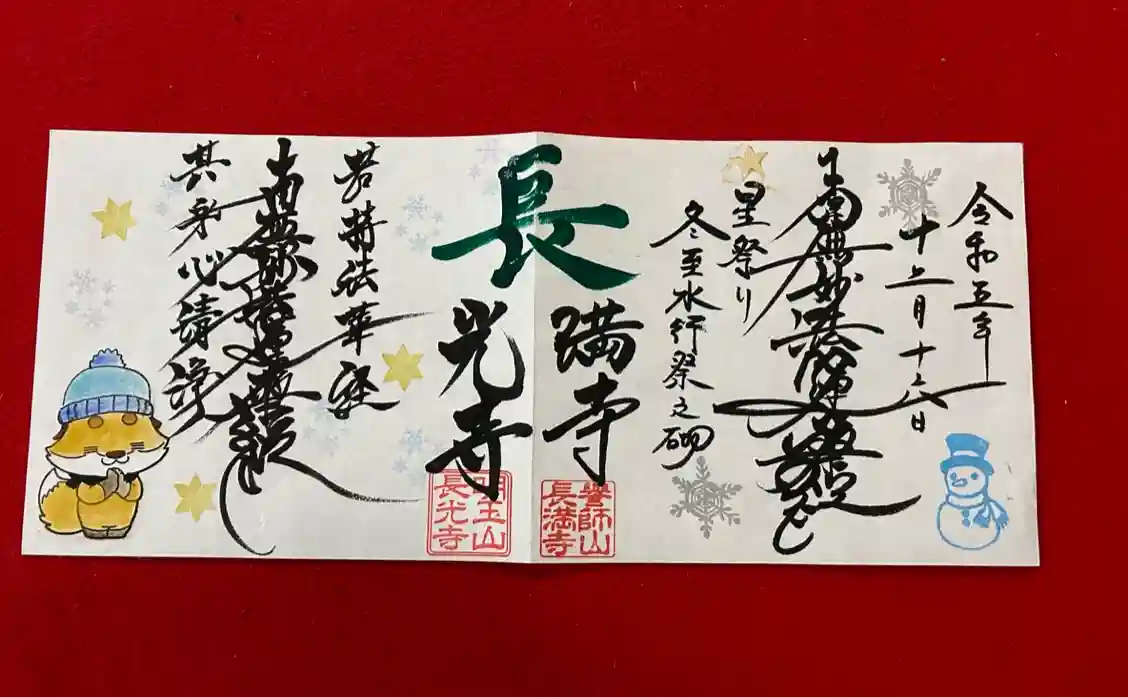 令和五年
十二月十六日
南無妙法蓮華経
星祭り
冬至水行祭之砌
長
満寺
光寺
譽師山
長満寺
明玉山
長光寺
若持法華経
南無妙法蓮華経
其身心清浄